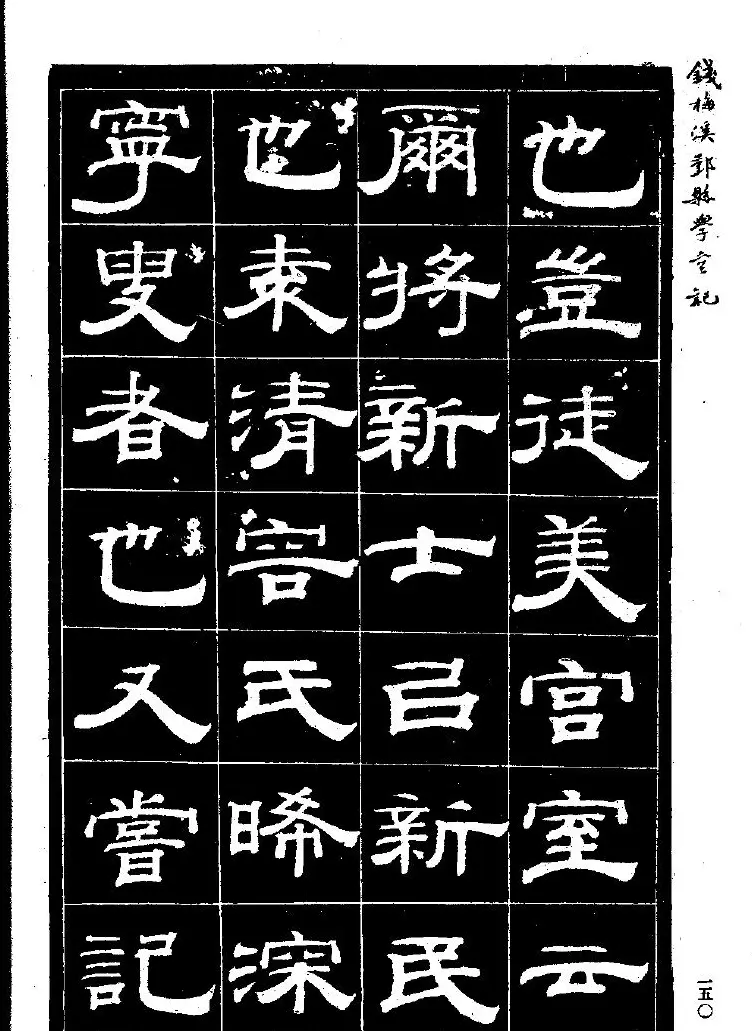 錢梅溪鄞縣學記
也豈徒美宮室云
爾將新士㠯新民
也袁清容氏晞深
寧叟者也又嘗記
一五〇